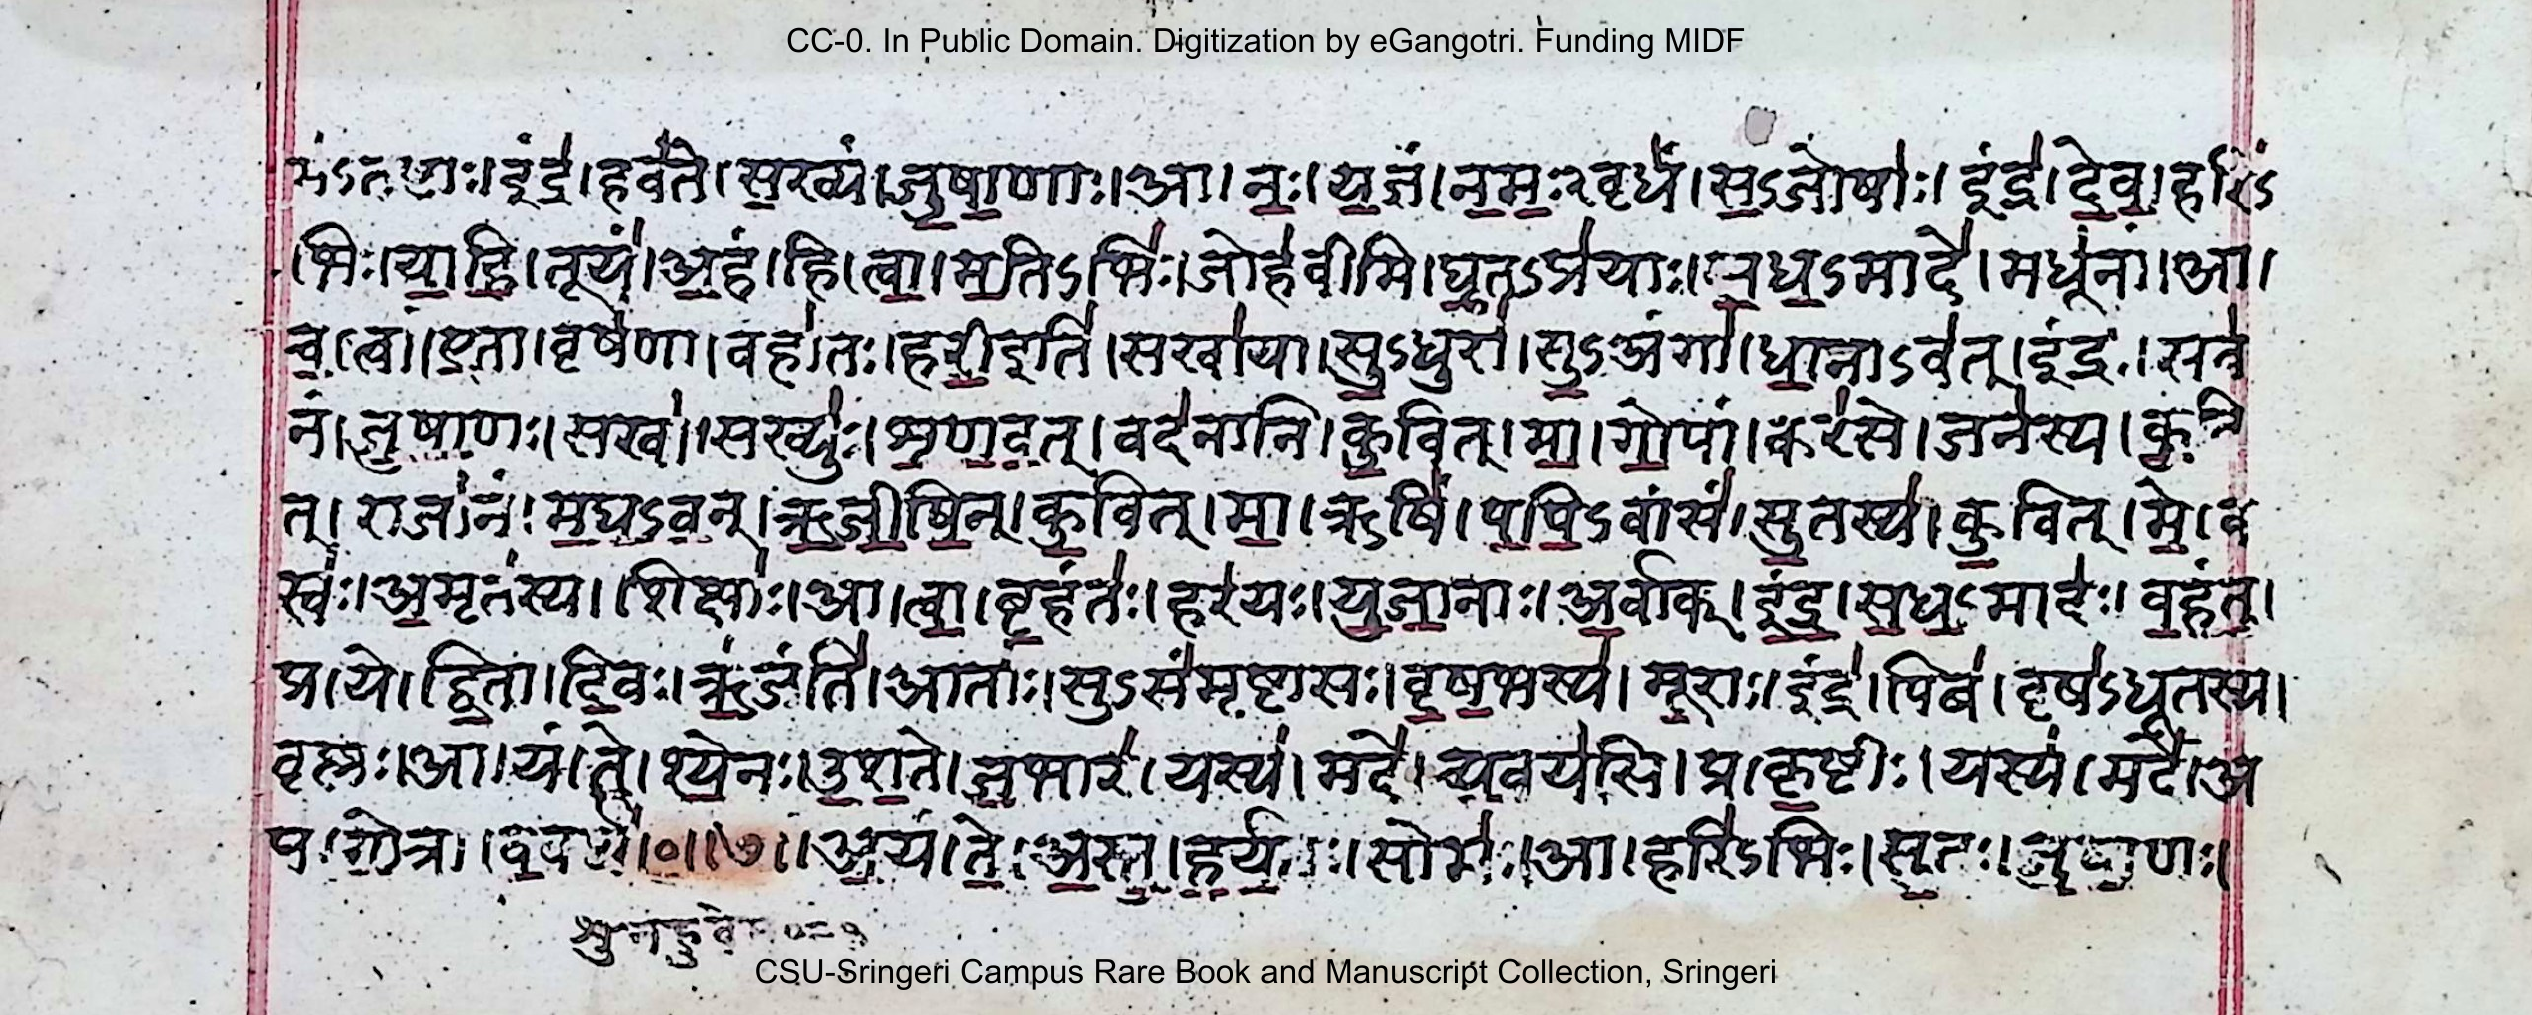 CC-0. In Public Domain. Digitization by eGangotri. Funding MIDF
इंद्र॑।हव॑ते।स॒ख्यं।जु॒षा॒णाः।आ।नः॒।य॒ज्ञं।न॒मः॒ऽवृधं॑।स॒ऽजोषाः॑।इंद्र॑।दे॒व॒।हरि॑ऽ
भिः।या॒हि॒।तूयं॑।अ॒हं।हि।त्वा॒।म॒तिऽभिः॑।जोह॑वीमि।घृ॒तऽप्र॑याः।स॒ध॒ऽमादे॑।मधू॑नां।आ।
च॒।त्वां।ए॒ता।वृष॑णा।वहा॑तः।हरी॒इति॑।सखा॑या।सु॒ऽधुरा॑।सु॒ऽअंगा॑।धा॒नाऽव॑त्।इंद्रः॑।सव॑
नं।जु॒षा॒णः।सखा॑।सख्युः॑।शृ॒ण॒व॒त्।वंद॑नानि।कु॒वित्।मा॒।गो॒पां।कर॑से।जन॑स्य।कु॒वि
त्।राजा॑नं।म॒घ॒ऽव॒न्।ऋ॒जी॒षि॒न्।कु॒वित्।मा॒।ऋषिं॑।प॒पि॒ऽवांसं॑।सु॒तस्य॑।कु॒वित्।मे॒।व
स्वः॑।अ॒मृत॑स्य।शिक्षाः॑।आ।त्वा॒।बृ॒हंतः॑।हर॑यः।यु॒जा॒नाः।अ॒र्वाक्।इं॒द्र॒।स॒ध॒ऽमादः॑।व॒हं॒तु॒।
प्र।ये।द्वि॒ता।दि॒वः।ऋं॒जंति॑।आताः॑।सुऽसं॑मृष्टासः।वृ॒ष॒भस्य॑।मू॒राः।इंद्र॑।पिब॑।वृष॑ऽधूतस्य।
वृष्णः॑।आ।यं।ते॒।श्ये॒नः।उ॒श॒ते।ज॒भार॑।यस्य॑।मदे॑।च्य॒वय॑सि।प्र।कृ॒ष्टीः।यस्य॑।मदे॑।अ
प।गो॒त्रा।व॒वर्थ॑।०॥७॥अ॒यं।ते॒।अ॒स्तु॒।ह॒र्य॒तः।सोमः॑।आ।हरि॑ऽभिः।सु॒तः।जु॒षा॒णः।
CSU-Sringeri Campus Rare Book and Manuscript Collection, Sringeri